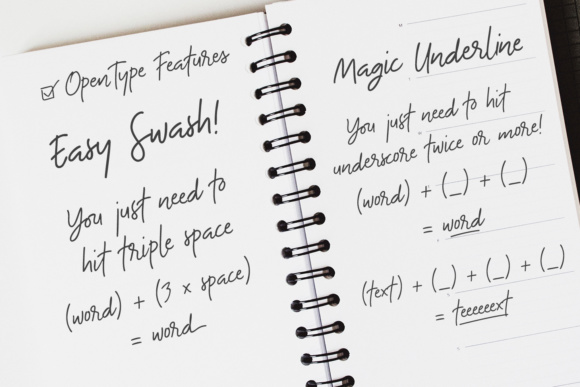 OpenType Features
Easy Swash!
You just need to
hit triple space
(word) + (3 x space)
= word
Magic Underline
You just need to hit
underscore twice or more!
(word) + (_) + (_)
= word
(text) + (_) + (_) + (_)
= teeeeext